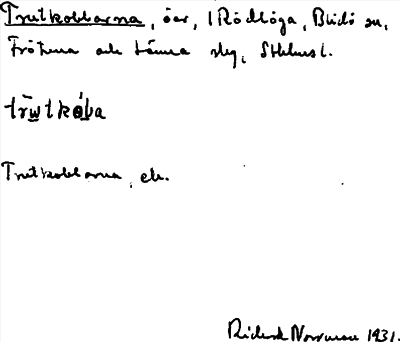 Trutkobbarna, öar, i Rödlöga, Blidö sn,
Frötuna och Länna slg, Sthlms l.
trŵtkọ́ba
Trutkobbarna, ek.
Rickard Norrman 1931.